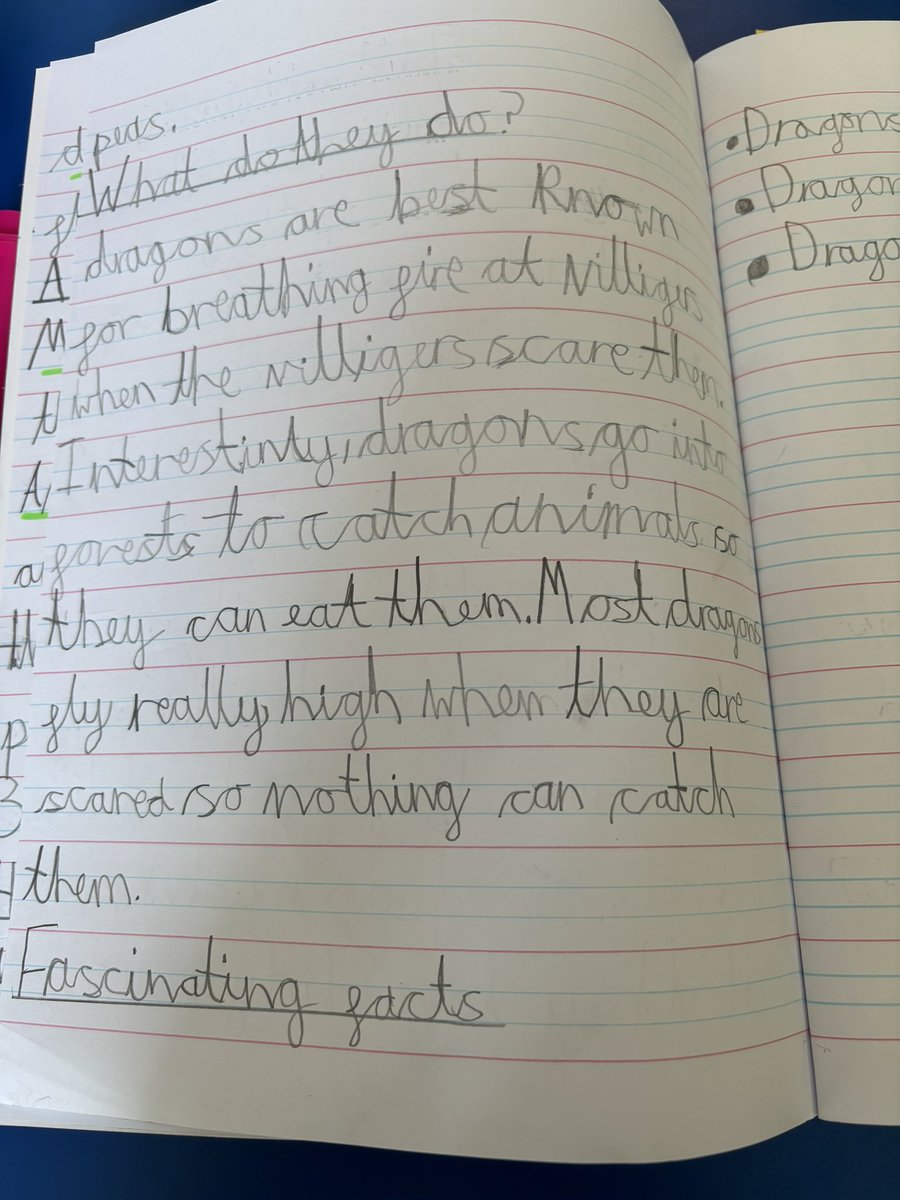 What do they do?
dragons are best Known
for breathing fire at villigers
when the villigers scare them.
Interestinty, dragons go into
forests to catch animals so
they can eat them. Most dragons
fly really high when they are
scared so nothing can catch
them.
Fascinating facts
•Dragons
•Dragon
•Drago